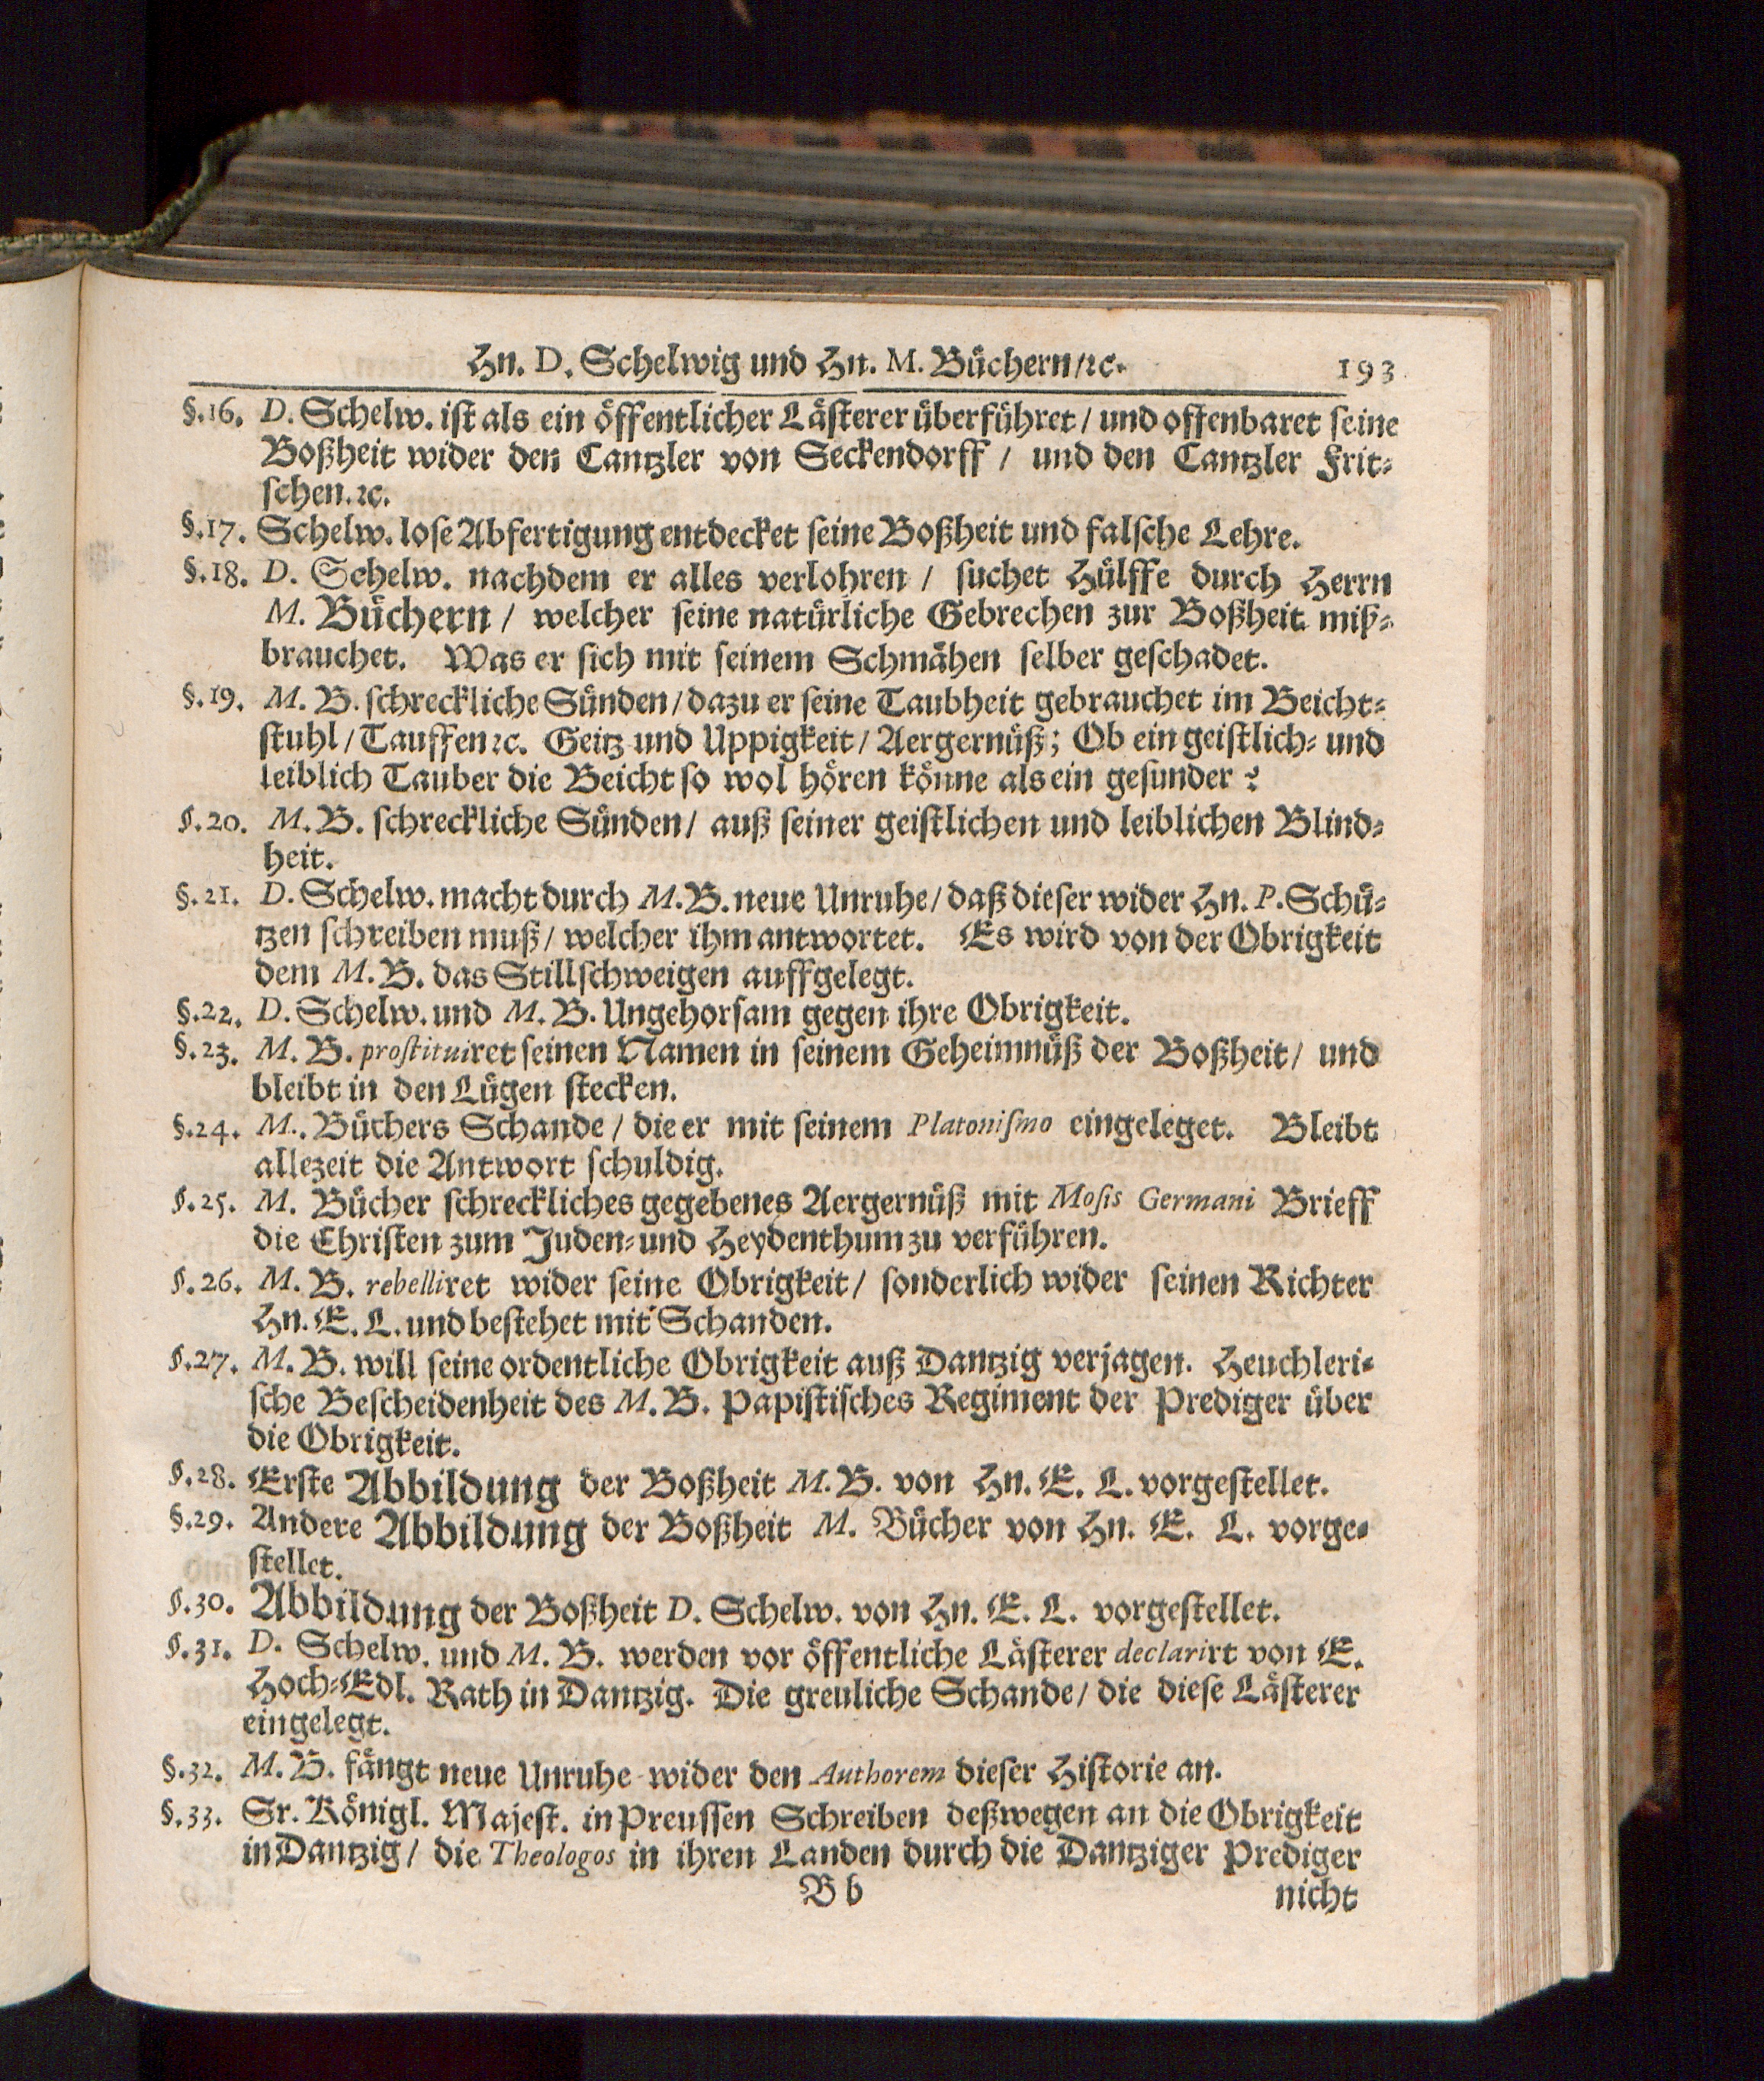 Hn. D. Schelwig und Hn. M. Büchern/ꝛc. 193
§.16. D. Schelw. ist als ein öffentlicher Lästerer überführet / und offenbaret seine
Boßheit wider den Cantzler von Seckendorff / und den Cantzler Frit⸗
schen.ꝛc.
§.17. Schelw. lose Abfertigung entdecket seine Boßheit und falsche Lehre.
§.18. D. Schelw. nachdem er alles verlohren / suchet Hülffe durch Herrn
M. Büchern / welcher seine natürliche Gebrechen zur Boßheit miß⸗
brauchet. Was er sich mit seinem Schmähen selber geschadet.
§.19. M. B. schreckliche Sünden / dazu er seine Taubheit gebrauchet im Beicht⸗
stuhl / Tauffen ꝛc. Geitz und Uppigkeit / Aergernüß; Ob ein geistlich⸗ und
leiblich Tauber die Beicht so wol hören könne als ein gesunder ?
§.20. M. B. schreckliche Sünden / auß seiner geistlichen und leiblichen Blind⸗
heit.
§.21. D. Schelw. macht durch M. B. neue Unruhe / daß dieser wider Hn. P. Schü⸗
tzen schreiben muß / welcher ihm antwortet. Es wird von der Obrigkeit
dem M. B. das Stillschweigen auffgelegt.
§.22. D. Schelw. und M. B. Ungehorsam gegen ihre Obrigkeit.
§.23. M. B. prostituiret seinen Namen in seinem Geheimnüß der Boßheit / und
bleibt in den Lügen stecken.
§.24. M.. Büchers Schande / die er mit seinem Platonismo eingeleget. Bleibt
allezeit die Antwort schuldig.
§.25. M. Bücher schreckliches gegebenes Aergernüß mit Mosis Germani Brieff
die Christen zum Juden⸗ und Heydenthum zu verführen.
§.26. M. B. rebelliret wider seine Obrigkeit / sonderlich wider seinen Richter
Hn. E. L. und bestehet mit Schanden.
§.27. M. B. will seine ordentliche Obrigkeit auß Dantzig verjagen. Heuchleri⸗
sche Bescheidenheit des M. B. Papistisches Regiment der Prediger über
die Obrigkeit.
§.28. Erste Abbildung der Boßheit M. B. von Hn. E. L. vorgestellet.
§.29. Andere Abbildung der Boßheit M. Bücher von Hn. E. L. vorge⸗
stellet.
§.30. Abbildung der Boßheit D. Schelw. von Hn. E. L. vorgestellet.
§.31. D. Schelw. und M. B. werden vor öffentliche Lästerer declarirt von E.
Hoch⸗Edl. Rath in Dantzig. Die greuliche Schande / die diese Lästerer
eingelegt.
§.32. M. B. fängt neue Unruhe wider den Authorem dieser Historie an.
§.33. Sr. Königl. Majest. in Preussen Schreiben deßwegen an die Obrigkeit
in Dantzig / die Theologos in ihren Landen durch die Dantziger Prediger
B b nicht